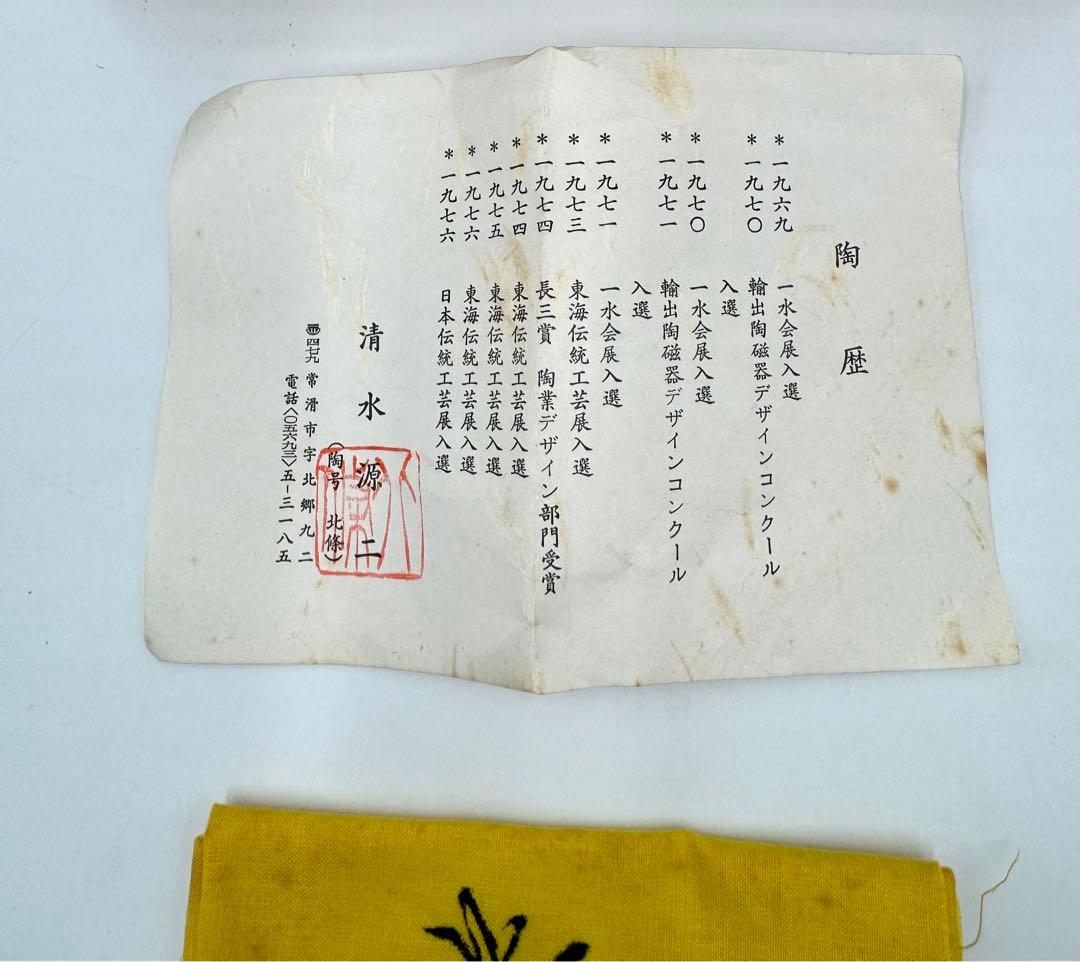 陶歴
*一九六九 一水会展入選
*一九七〇 輸出陶磁器デザインコンクール
入選
*一九七〇 一水会展入選
*一九七一 輸出陶磁器デザインコンクール
入選
*一九七一 一水会展入選
*一九七三 東海伝統工芸展入選
*一九七四 長三賞 陶業デザイン部門受賞
*一九七四 東海伝統工芸展入選
*一九七五 東海伝統工芸展入選
*一九七六 東海伝統工芸展入選
*一九七六 日本伝統工芸展入選
清水源二
(陶号 北條)
四七九 常滑市字北郷九二
電話〈〇五六九三〉五-三一八五